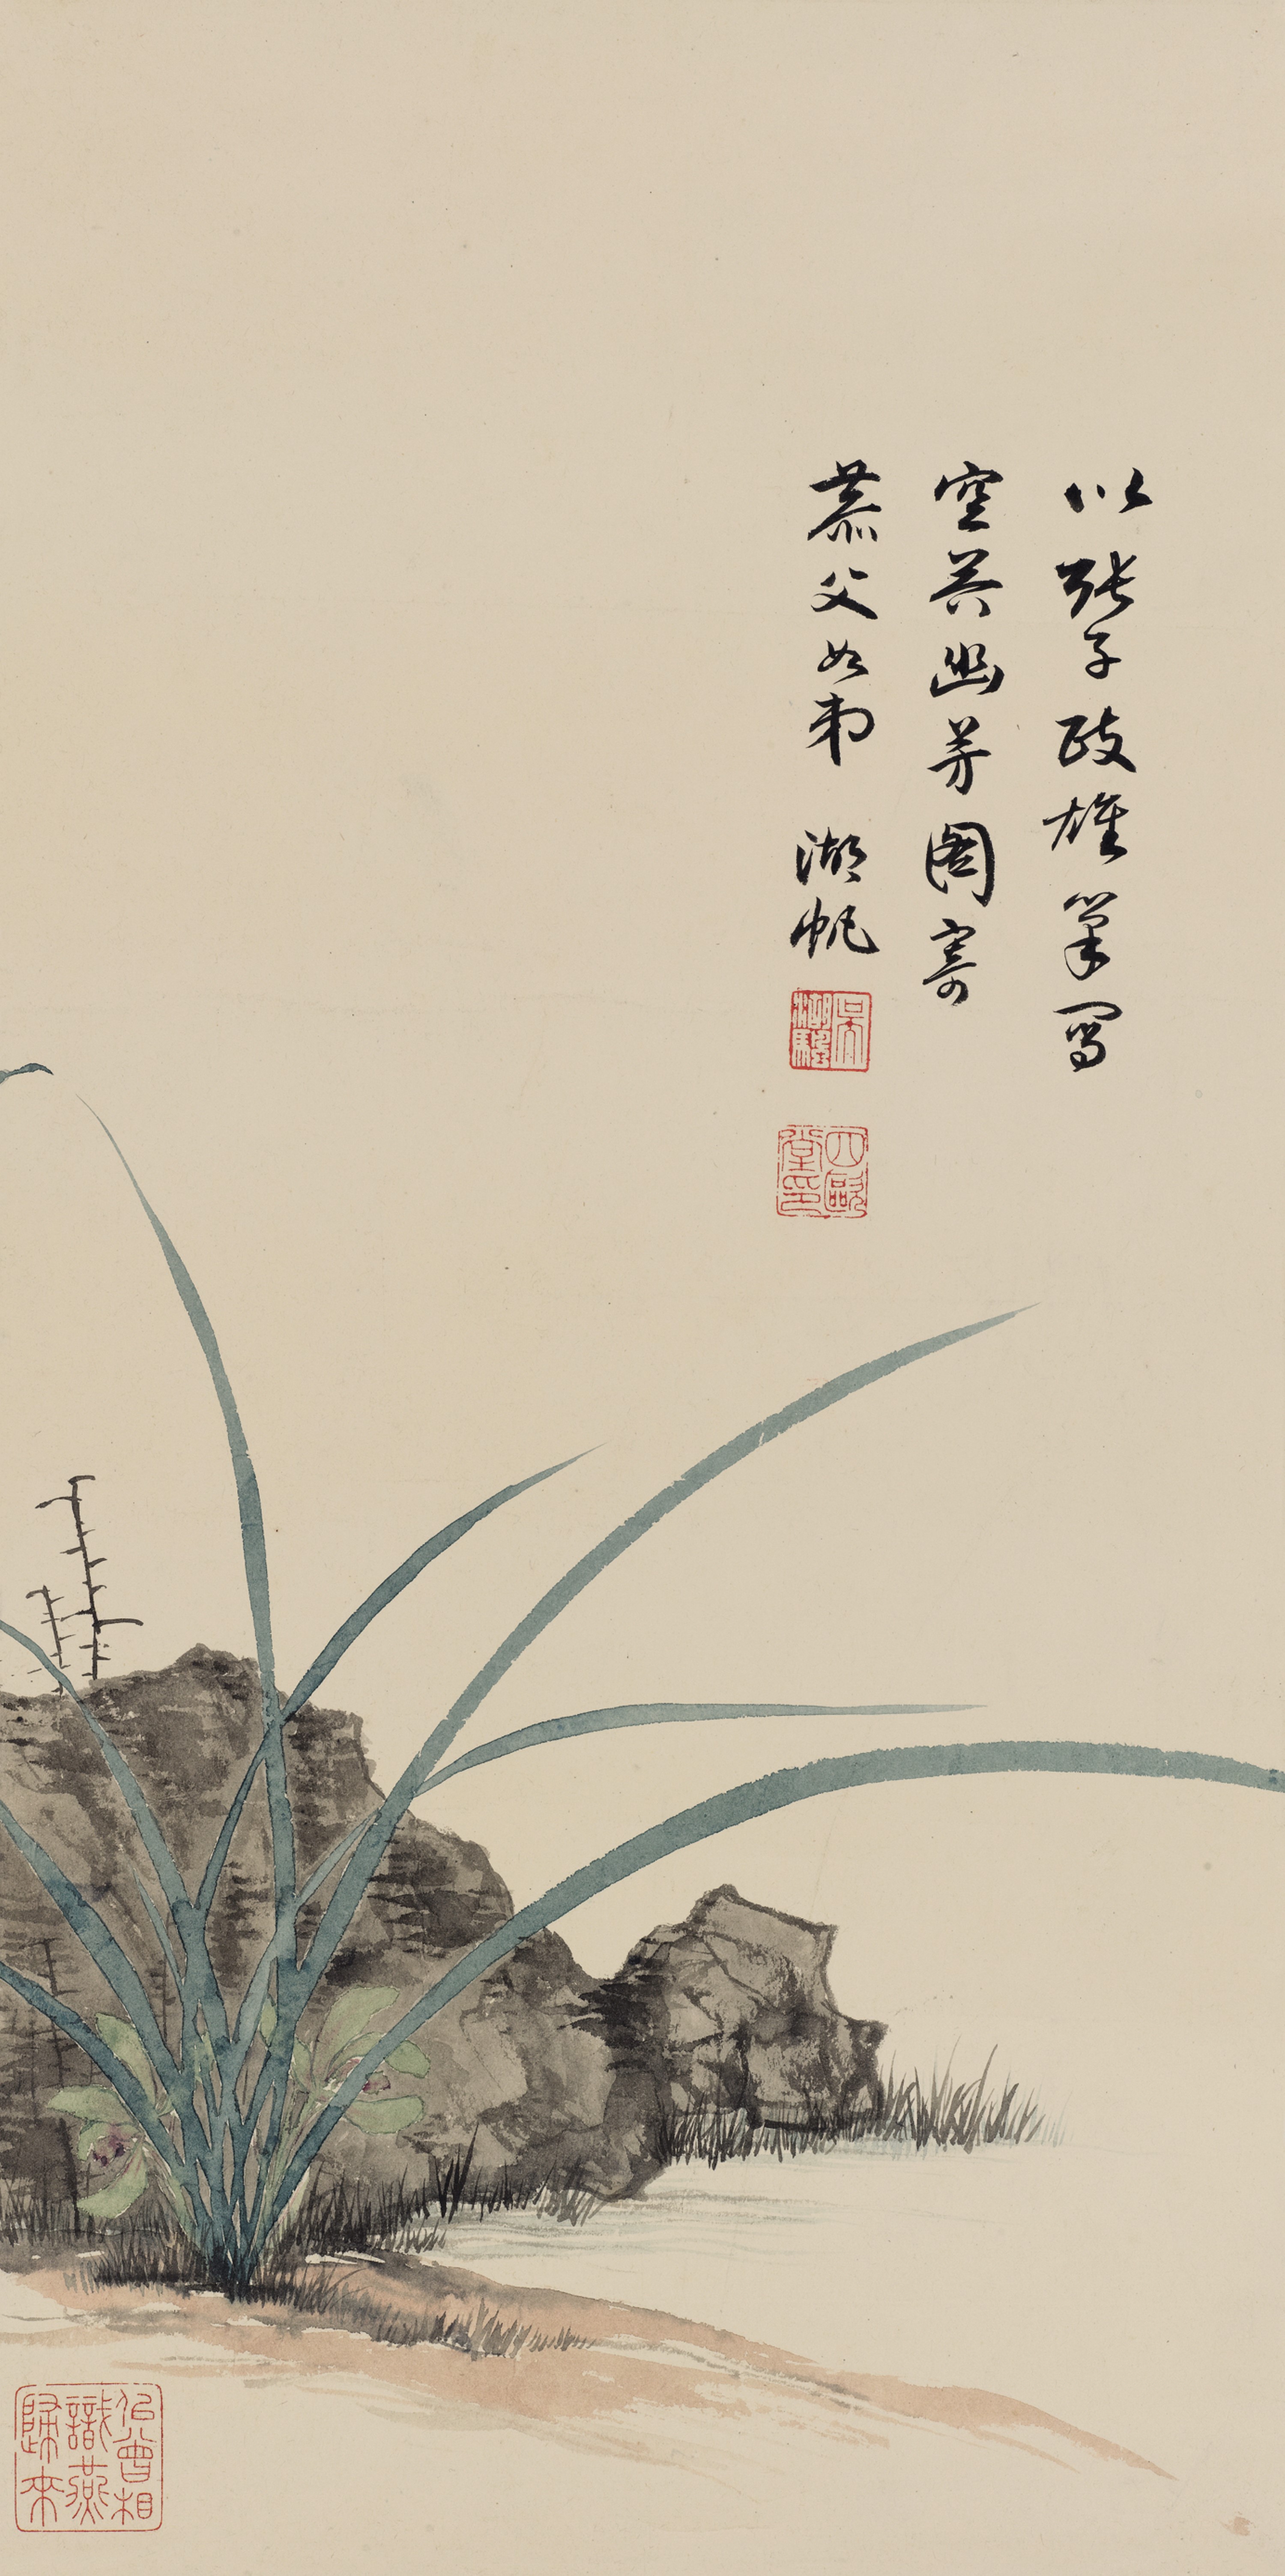 以張子政雄筆寫
空谷幽芳圖寄
恭父如弟 湖帆
吳湖颿
四歐堂印
似曾相識燕歸來